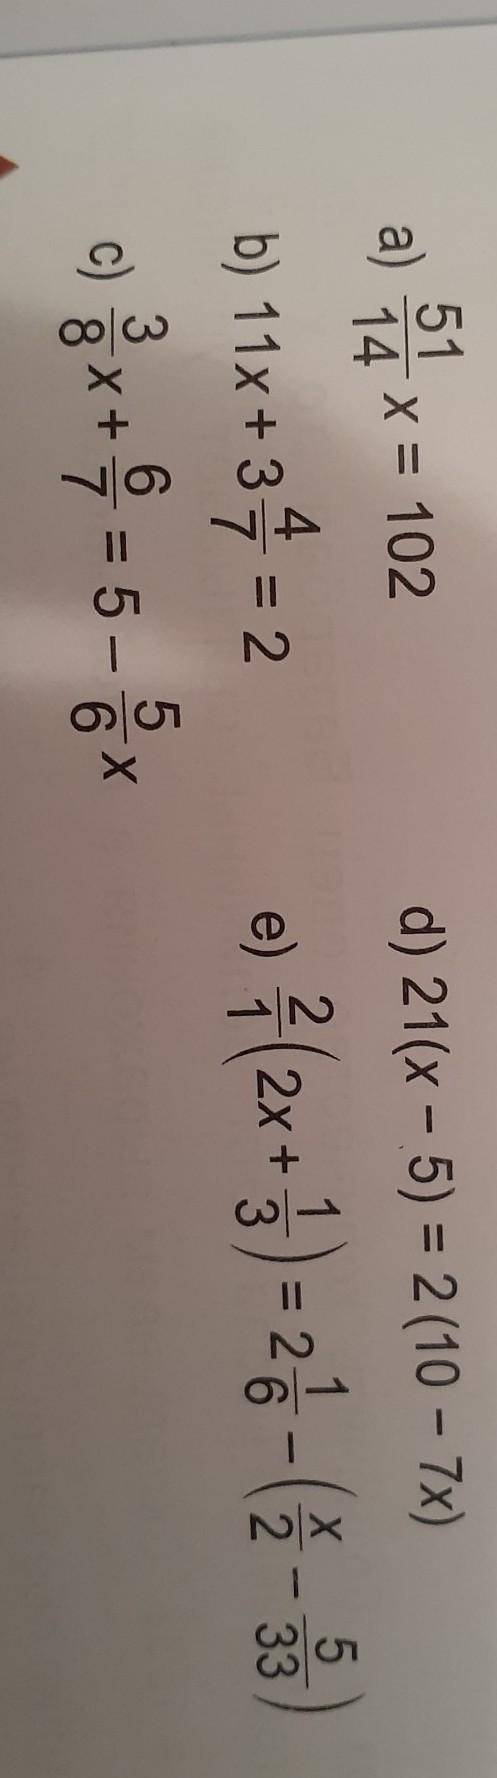 a) \frac{51}{14}x = 102
b) 11x + 3\frac{4}{7} = 2
c) \frac{3}{8}x + \frac{6}{7} = 5 - \frac{5}{6}x
d) 21(x - 5) = 2(10 - 7x)
e) \frac{2}{1}(2x + \frac{1}{3}) = 2\frac{1}{6} - (\frac{x}{2} - \frac{5}{33})